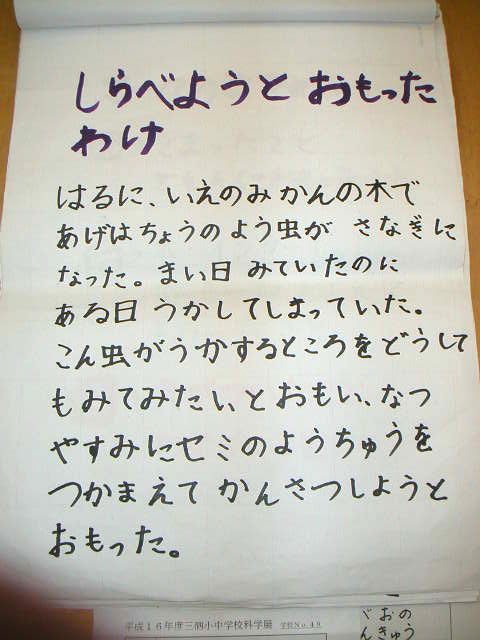 しらべようと おもった
わけ
はるに、いえのみかんの木で
あげはちょうのよう虫が さなぎに
なった。まい日 みていたのに
ある日 うかしてしまっていた。
こん虫がうかするところをどうして
もみてみたいとおもい、なつ
やすみにセミのようちゅうを
つかまえて かんさつしようと
おもった。
平成16年度三酒小中学校科学展 学校No.49
のう
おきゅう
べん